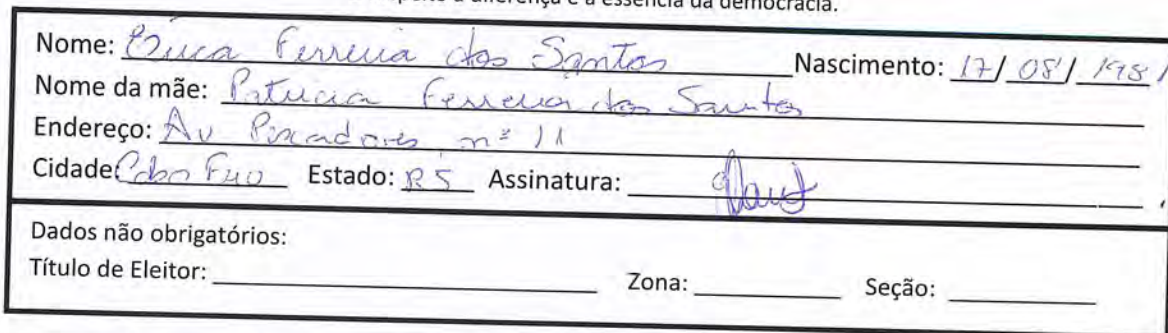 a diferença é a essência da democracia.
Nome: Erica Ferreira dos Santos Nascimento: 17/ 08/ 1981
Nome da mãe: Patricia Ferreira dos Santos
Endereço: Av Pescadores nº 11
Cidade: Cabo Frio Estado: RJ Assinatura:
Dados não obrigatórios:
Título de Eleitor: Zona: Seção: